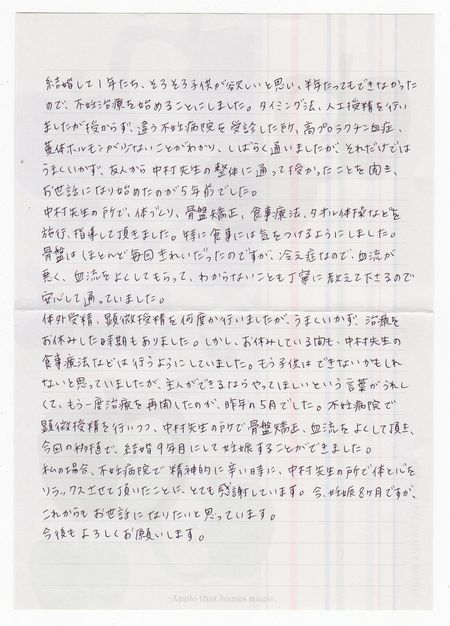 結婚して1年たち、そろそろ子供が欲しいと思い、半年たってもできなかった
ので、不妊治療を始めることにしました。タイミング法、人工授精を行い
ましたが授からず、違う不妊病院を受診した所、高プロラクチン血症、
黄体ホルモンが少ないことがわかり、しばらく通いましたが、それだけでは
うまくいかず、友人から中村先生の整体に通って授かったことを聞き、
お世話になり始めたのが5年前でした。
中村先生の所で、体づくり、骨盤矯正、食事療法、タオル体操などを
施行、指導して頂きました。特に食事には気をつけるようにしました。
骨盤はほとんど毎回きれいだったのですが、冷え症なので、血流が
悪く、血流をよくしてもらって、わからないことも丁寧に教えて下さるので
安心して通っていました。
体外受精、顕微授精を何度か行いましたが、うまくいかず、治療を
お休みした時期もありました。しかし、お休みしている間も、中村先生の
食事療法などは行うようにしていました。もう子供はできないかもしれ
ないと思っていましたが、主人ができるならやってほしいという言葉がうれし
くて、もう一度治療を再開したのが、昨年の5月でした。不妊病院で
顕微授精を行いつつ、中村先生の所で骨盤矯正、血流をよくして頂き、
今回の移植で、結婚9年目にして妊娠することができました。
私の場合、不妊病院で精神的に辛い時に、中村先生の所で体と心を
リラックスさせて頂いたことに、とても感謝しています。今、妊娠8ヶ月ですが、
これからもお世話になりたいと思っています。
今後もよろしくお願いします。
Apple that bangs magic.